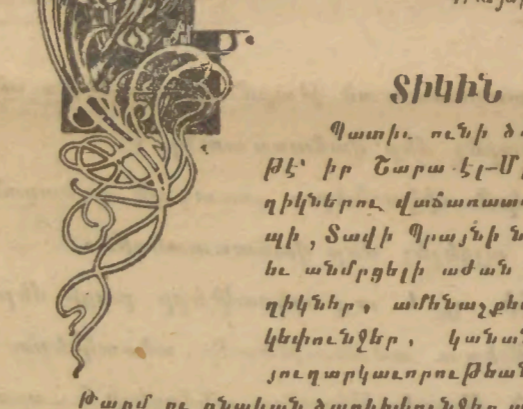 ՏԻԿԻՆ
Պատիւ ունի
թէ՝ իր Շարա էլ-Մ
ղիկներու վաճառատ
պի, Տավի Պրայնի
եւ անմրցելի աժան
ղիկներ, ամենաշքե
կեփունջեր, կանա
յուղարկաւորութեան
Թարմ ու բնական ծաղիկեփունջեր